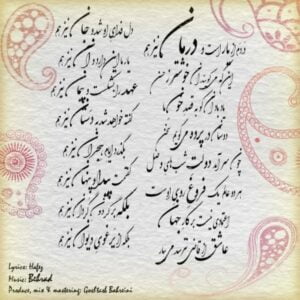 دردم از یار است و درمان نیز هم
دل فدای او شد و جان نیز هم
این که می‌گویند آن خوشتر ز حسن
یار ما این دارد و آن نیز هم
یاد باد آن کو به قصد خون ما
عهد را بشکست و پیمان نیز هم
دوستان در پرده می‌گویم سخن
گفته خواهد شد به دستان نیز هم
چون سرآمد دولت شب‌های وصل
بگذرد ایام هجران نیز هم
هر دو عالم یک فروغ روی اوست
گفتمت پیدا و پنهان نیز هم
اعتمادی نیست بر کار جهان
بلکه بر گردون گردان نیز هم
عاشق از قاضی نترسد می بیار
بلکه از یرغوی دیوان نیز هم
Lyrics: Hafez
Music: Behrad
Product, mix & mastering: Goeltash Bahreini